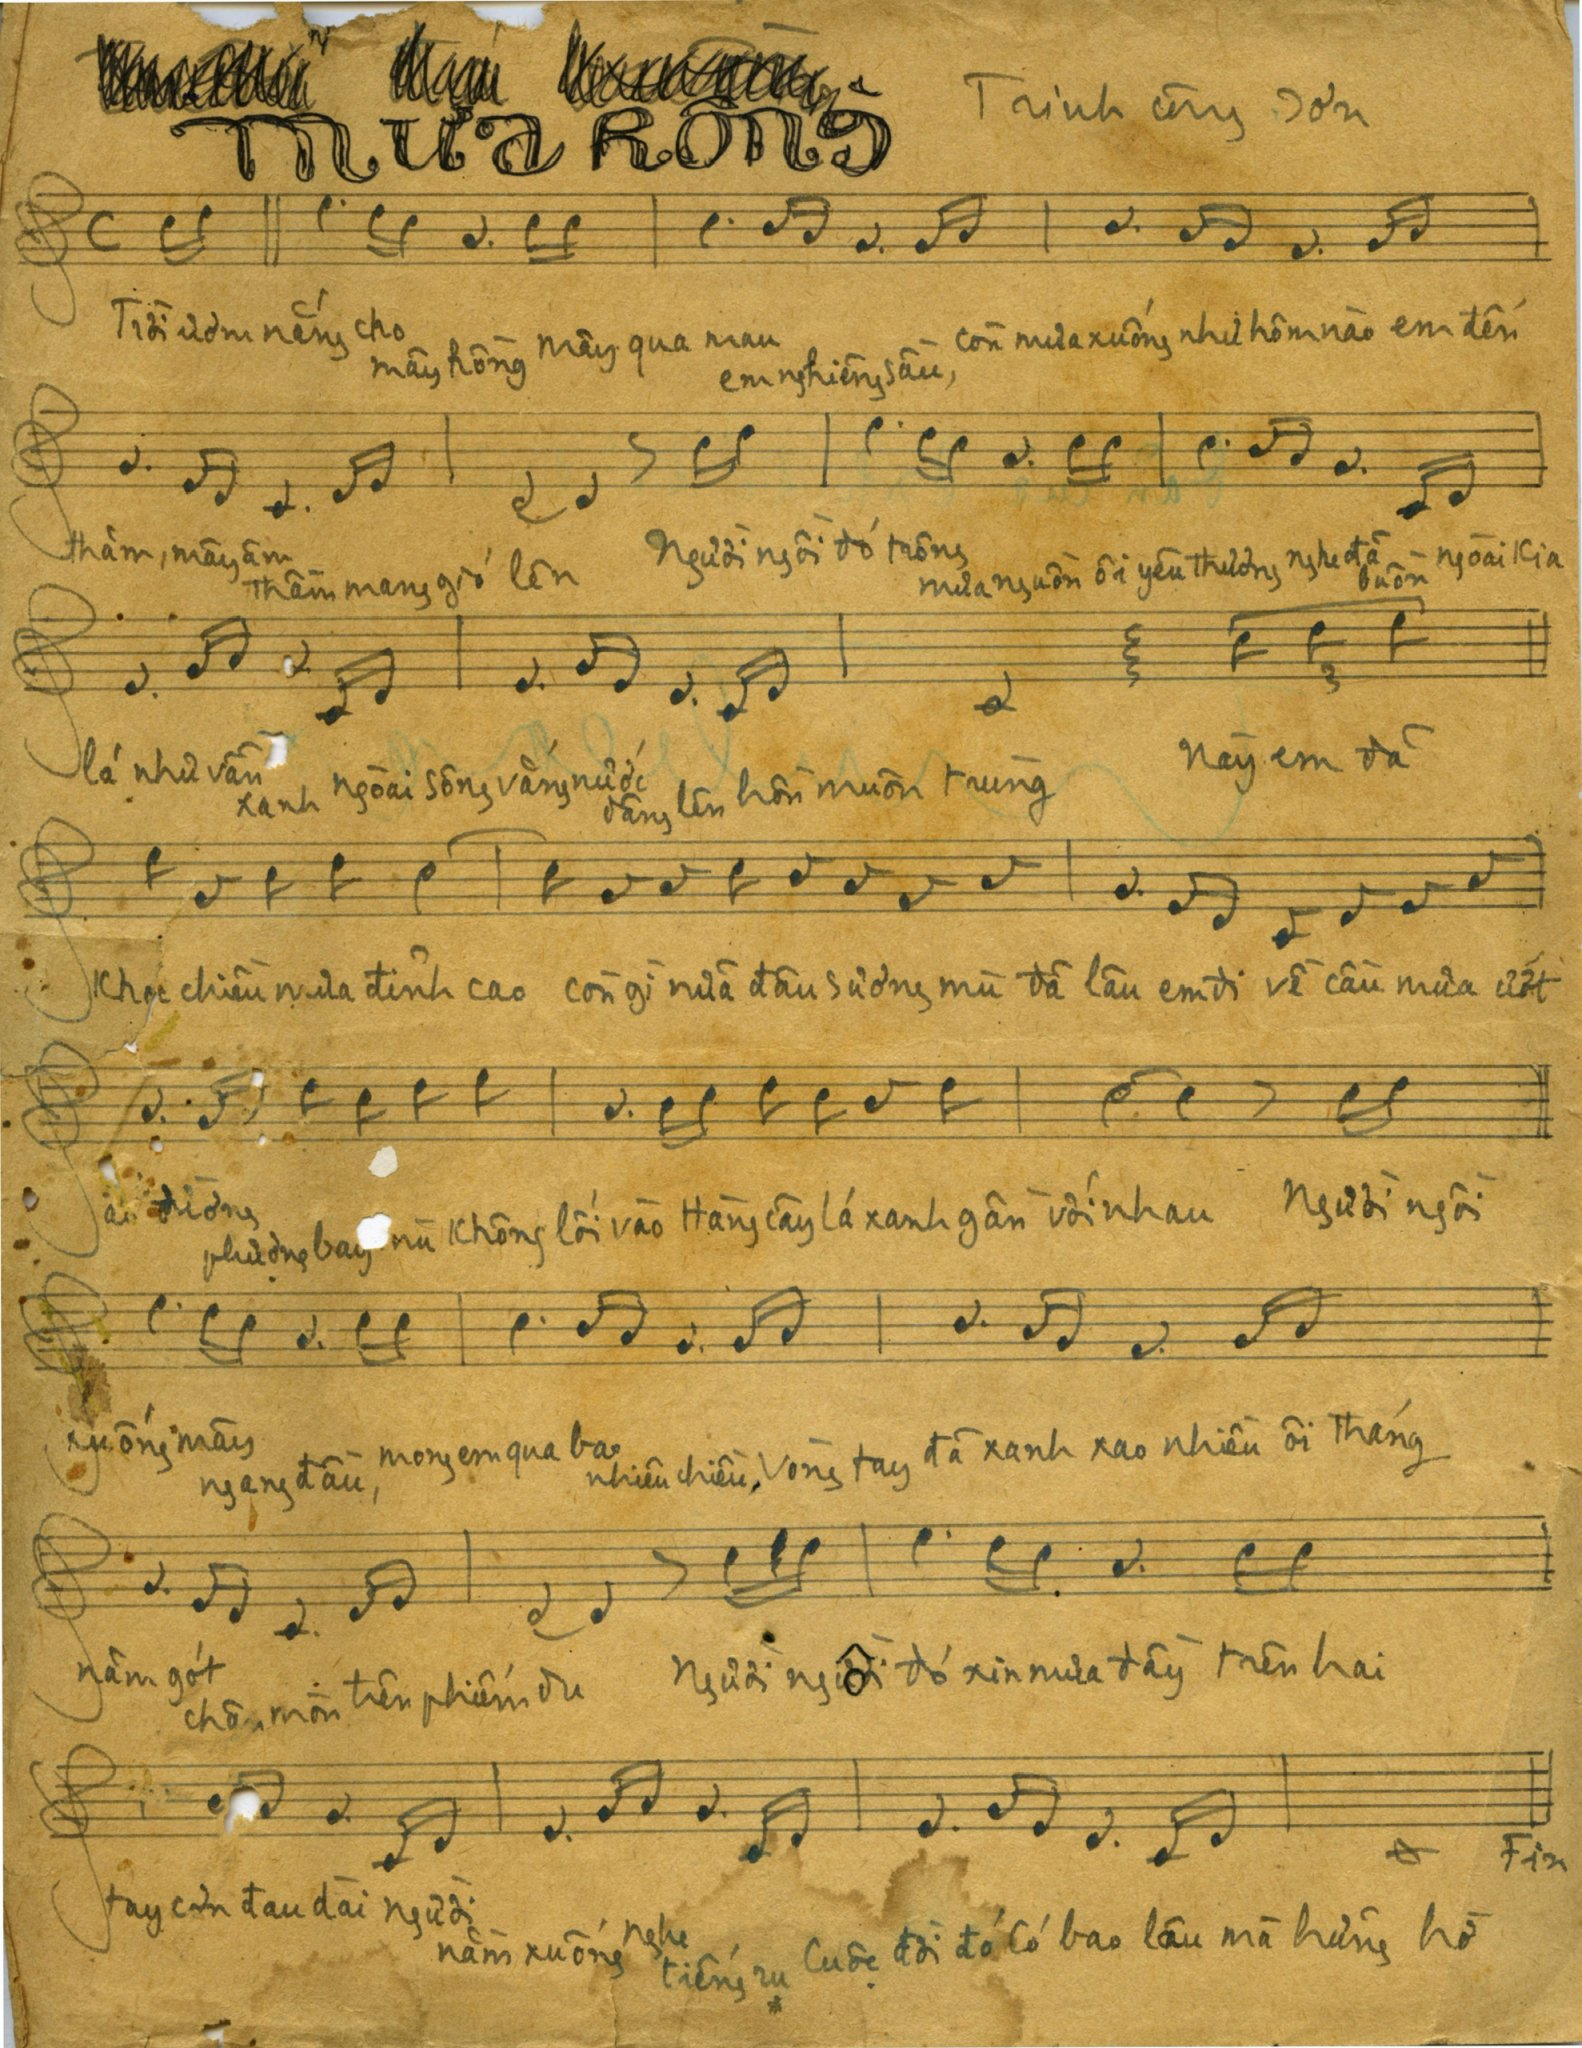 MƯA HỒNG
Trịnh công Sơn
Trời ươm nắng cho mây hồng mây qua mau em nghiêng sầu, còn mưa xuống như hôm nào em đến
thăm, mây âm thầm mang gió lên Người ngồi đó trông mưa nguồn ôi yêu thương nghe đã buồn ngoài kia
lá như vẫn xanh ngoài sông vắng nước dâng lên hồn muôn trùng Này em đã
khóc chiều mưa đỉnh cao còn gì nữa đâu sương mù đã lâu em đi về cầu mưa ướt
áo đường phượng bay mù không lối vào Hàng cây lá xanh gần với nhau Người ngồi
xuống mây ngang đầu, mong em qua bao nhiêu chiều, vòng tay đã xanh xao nhiều ôi tháng
năm gót chân mòn trên phiếm du Người ngồi đó xin mưa đầy trên hai
tay cơn đau dài người nằm xuống nghe tiếng ru Cuộc đời đó có bao lâu mà hững hờ
Fin